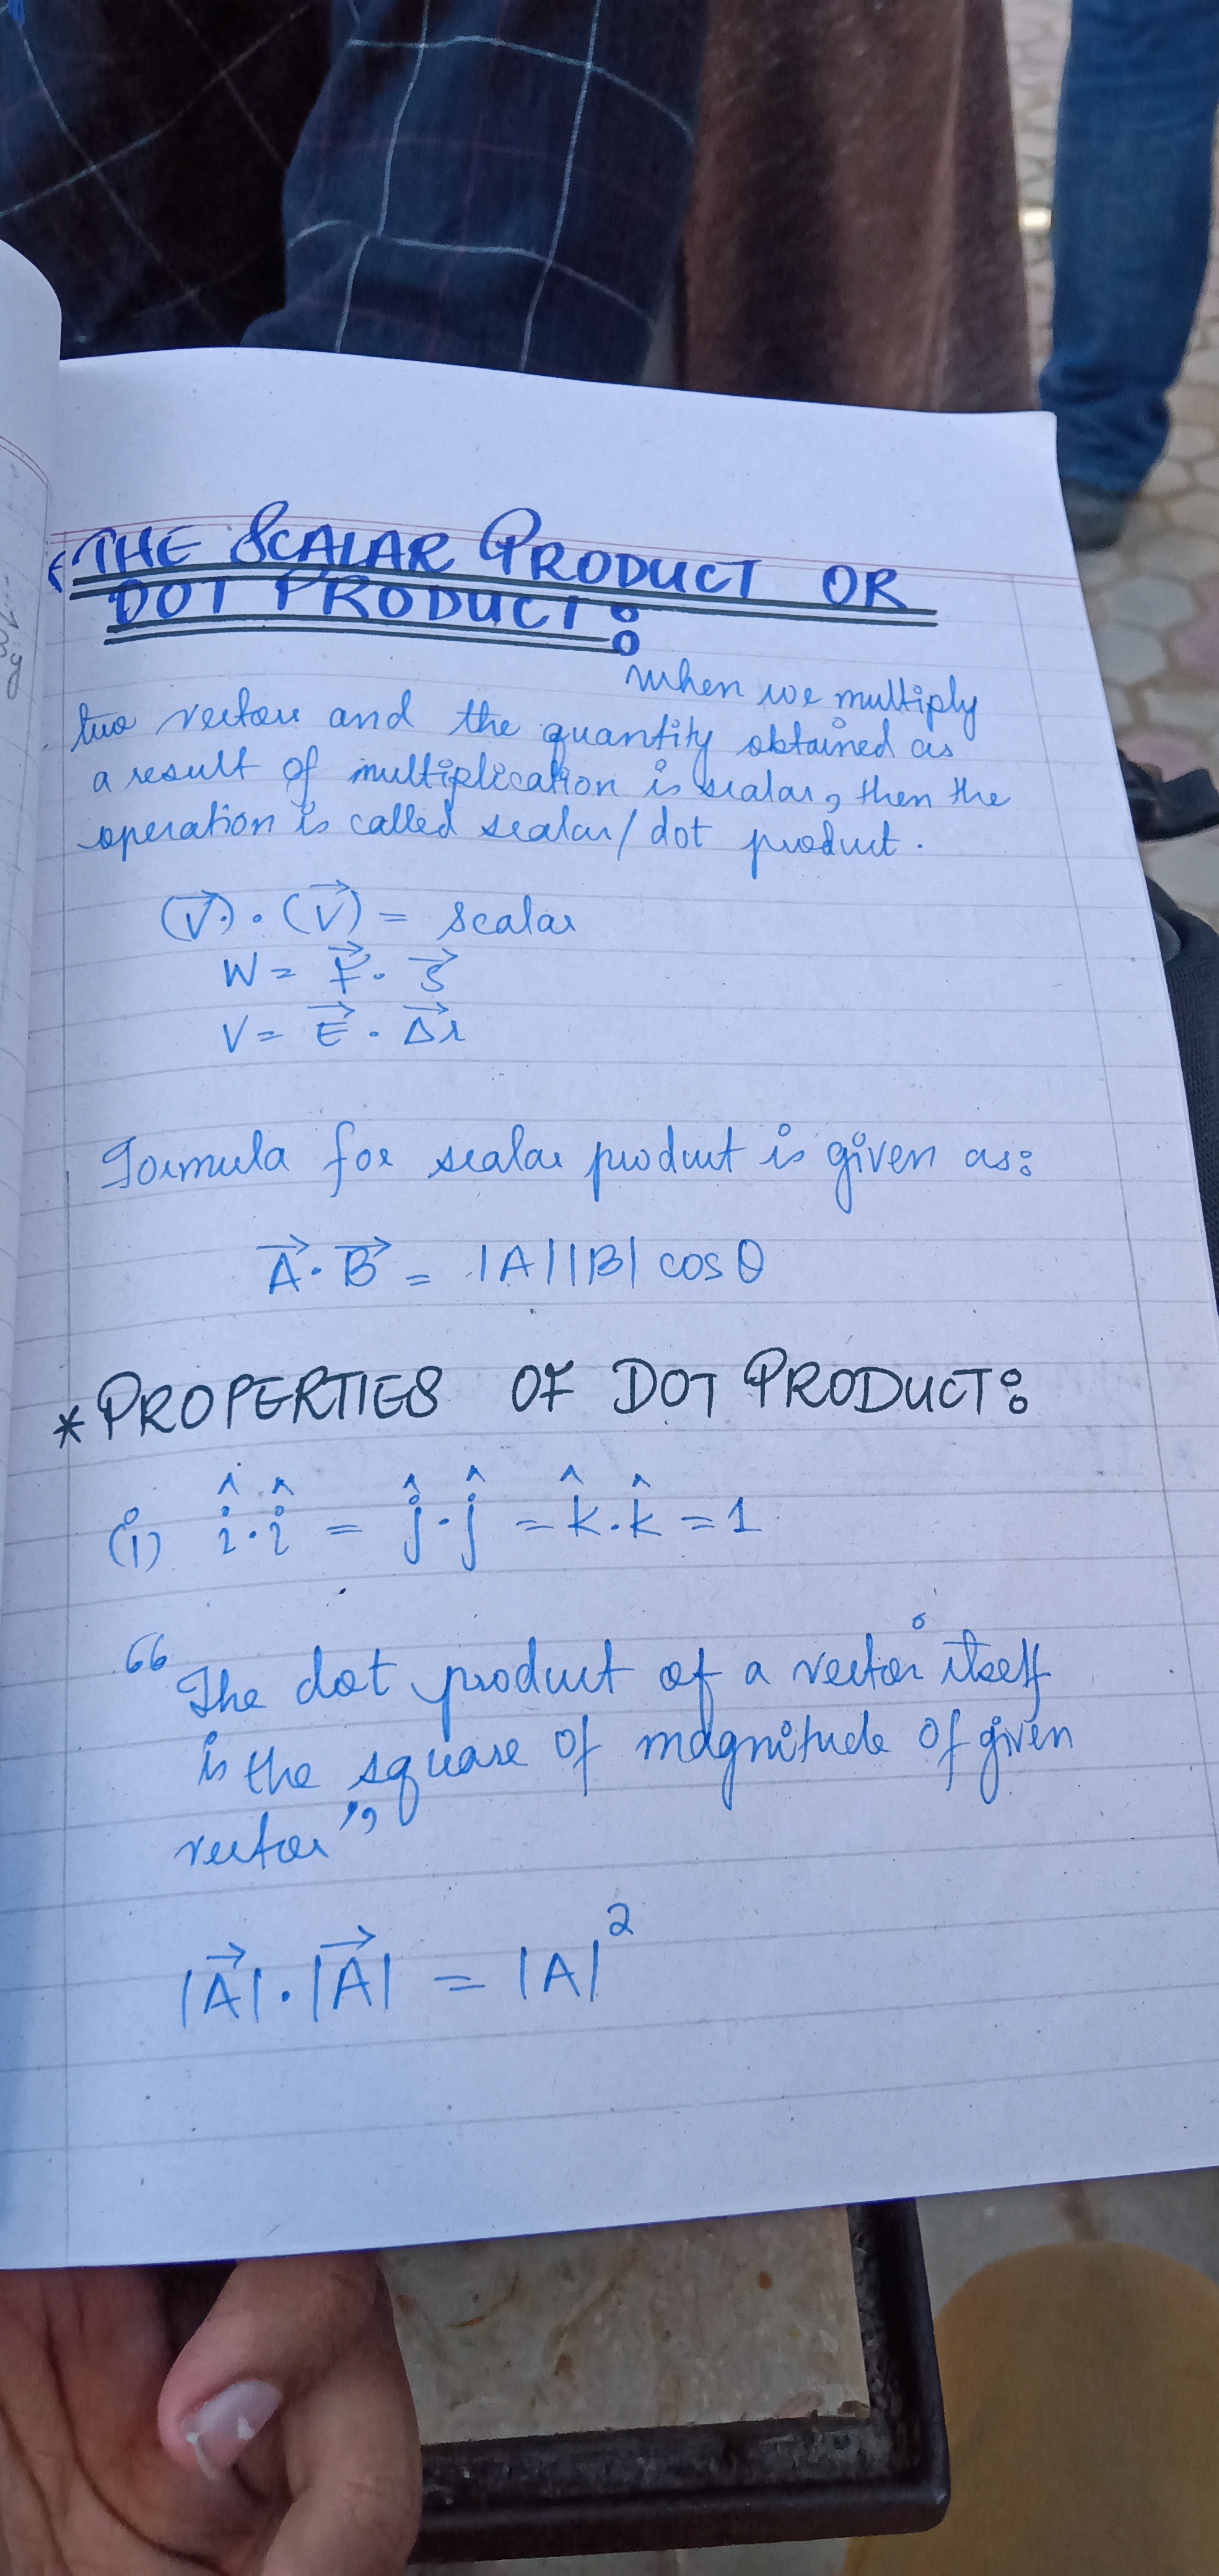 THE SCALAR PRODUCT OR
DOT PRODUCT:
When we multiply
two vectors and the quantity obtained as
a result of multiplication is scalar, then the
operation is called scalar/dot product.
(V⃗)·(V⃗) = scalar
W = F⃗·S⃗
V = E⃗·Δr⃗
Formula for scalar product is given as:
A⃗·B⃗ = |A||B| cosθ
*PROPERTIES OF DOT PRODUCT:
(i) î·î = ĵ·ĵ = k̂·k̂ = 1
“The dot product of a vector itself
is the square of magnitude of given
vector”
|A⃗|·|A⃗| = |A|²